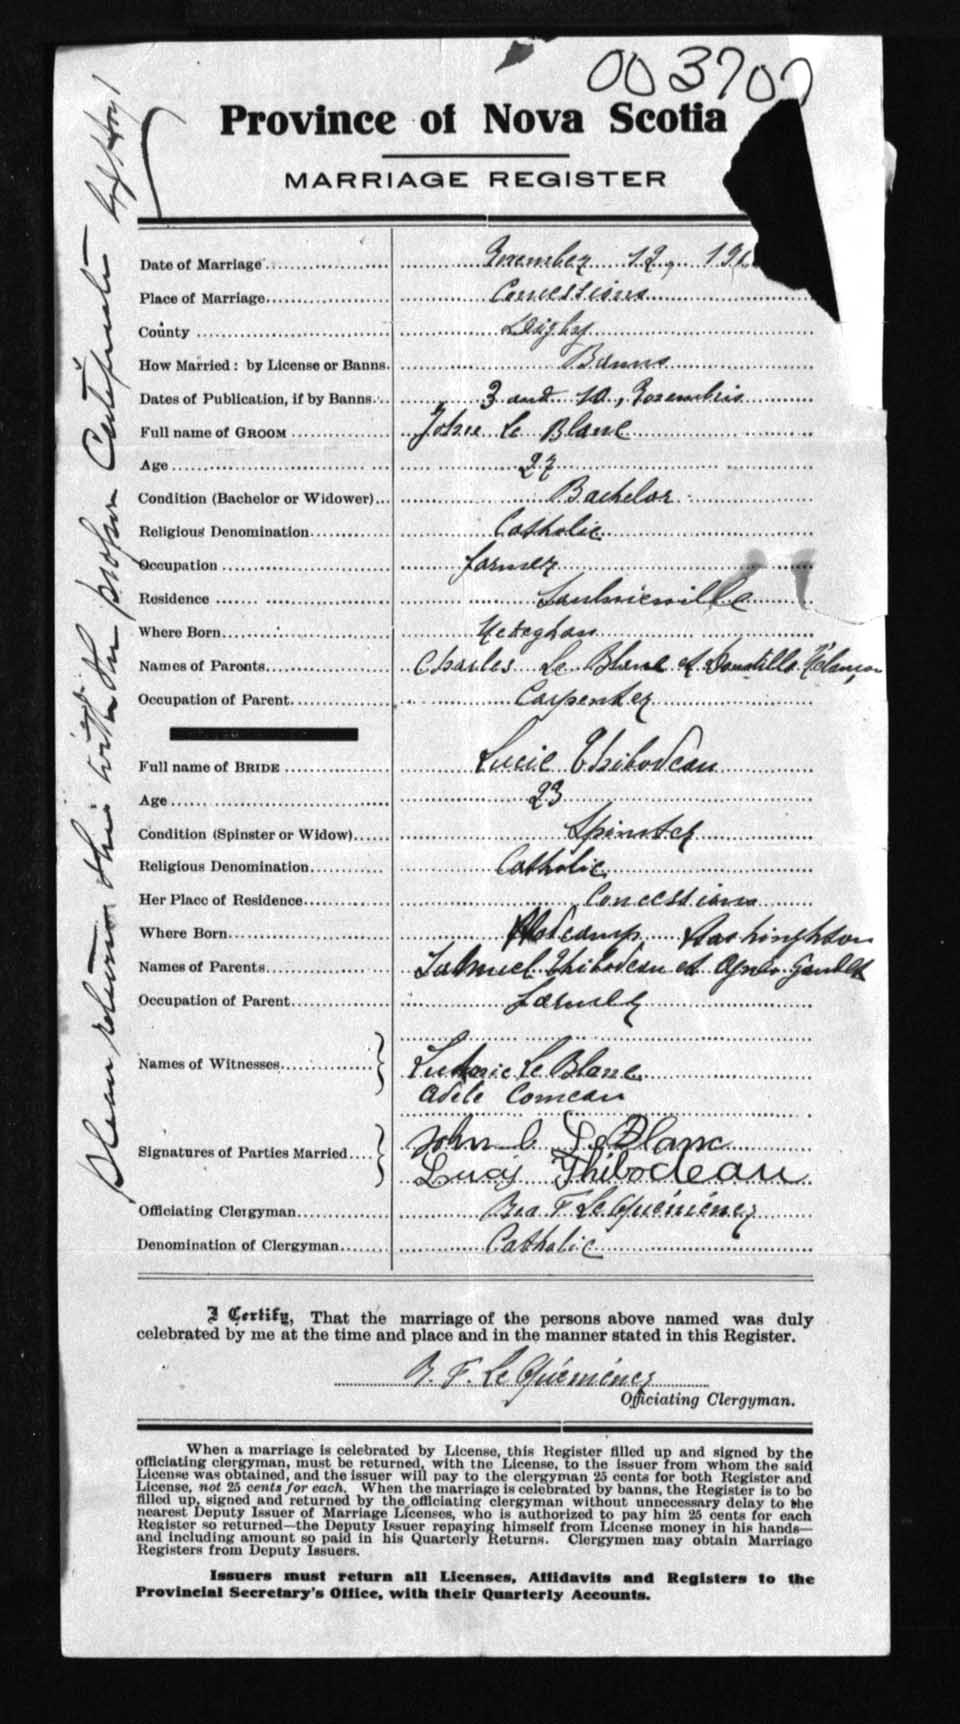 003707
Province of Nova Scotia
MARRIAGE REGISTER
Please return this with the proper Certificate
Date of Marriage November 12, 191
Place of Marriage Concessions
County Digby
How Married: by License or Banns. Banns
Dates of Publication, if by Banns 3 and 10, Novembris
Full name of GROOM John Le Blanc
Age 27
Condition (Bachelor or Widower) Bachelor
Religious Denomination Catholic
Occupation farmer
Residence Saulnierville
Where Born Meteghan
Names of Parents Charles Le Blanc et Domitille
Occupation of Parent Carpenter
Full name of BRIDE Lucie Thibodeau
Age 23
Condition (Spinster or Widow) Spinster
Religious Denomination Catholic
Her Place of Residence Concessions
Where Born Washinghton
Names of Parents Thibodeau et Agnes
Occupation of Parent Farmer
Names of Witnesses Le Blanc
Adele Comeau
Signatures of Parties Married John C LeBlanc
Lucy Thibodeau
Officiating Clergyman F. Le Quéméner
Denomination of Clergyman Catholic
I Certify, That the marriage of the persons above named was duly
celebrated by me at the time and place and in the manner stated in this Register.
F. Le Quéméner
Officiating Clergyman.
When a marriage is celebrated by License, this Register filled up and signed by the
officiating clergyman, must be returned, with the License, to the issuer from whom the said
License was obtained, and the issuer will pay to the clergyman 25 cents for both Register and
License, not 25 cents for each. When the marriage is celebrated by banns, the Register is to be
filled up, signed and returned by the officiating clergyman without unnecessary delay to the
nearest Deputy Issuer of Marriage Licenses, who is authorized to pay him 25 cents for each
Register so returned—the Deputy Issuer repaying himself from License money in his hands—
and including amount so paid in his Quarterly Returns. Clergymen may obtain Marriage
Registers from Deputy Issuers.
Issuers must return all Licenses, Affidavits and Registers to the
Provincial Secretary's Office, with their Quarterly Accounts.